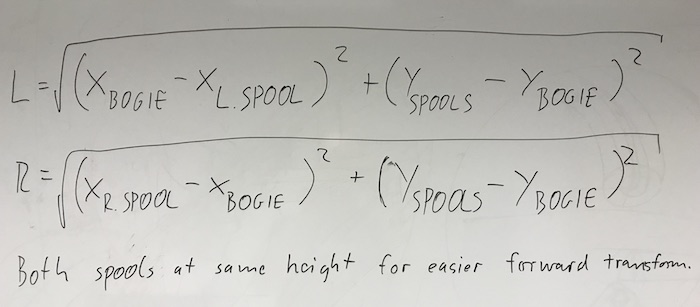 L = √(X_BOGIE - X_L.SPOOL)² + (Y_SPOOLS - Y_BOGIE)²
R = √(X_R.SPOOL - X_BOGIE)² + (Y_SPOOLS - Y_BOGIE)²
Both spools at same height for easier forward transform.